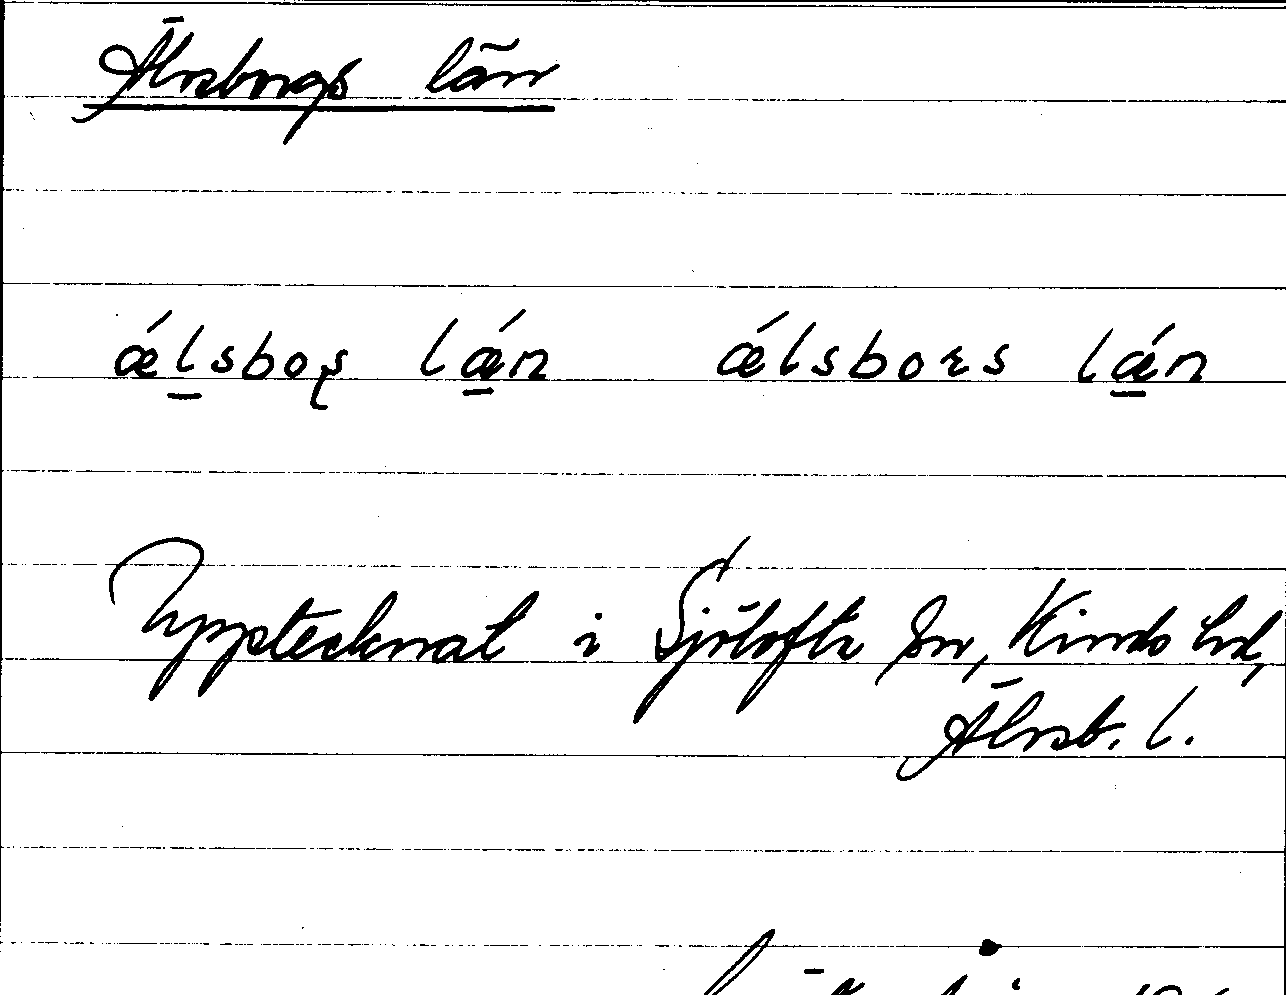 Älvsborgs län
ǽlsboʂ lǽn ǽlsbors lǽn
Upptecknat i Sjötofta sn, Kinds hd,
Älvsb. l.